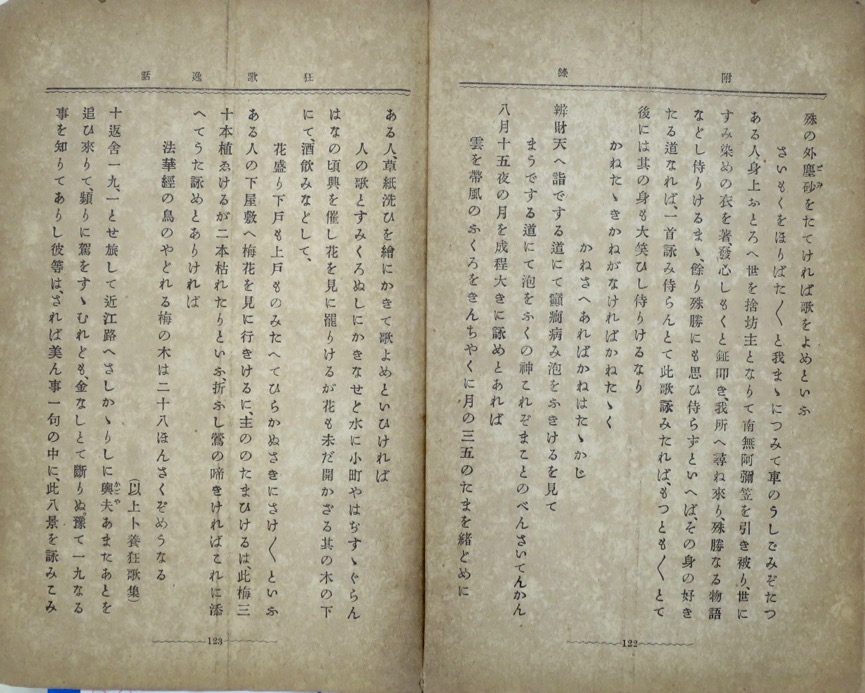 附錄
殊の外塵砂をたてければ歌をよめといふ
ごみ
さいもくをほりばた〱と我まゝにつみて車のうしごみぞたつ
ある人身上おとろへ世を捨坊主となりて南無阿彌笠を引き被り、世に
すみ染めの衣を著、發心しもくと鉦叩き、我所へ尋ね來り、殊勝なる物語
などし侍りけるまゝ、餘り殊勝にも思ひ侍らずといへば、その身の好き
たる道なれば、一首詠み侍らんとて此歌詠みたれば、もつとも〱とて
後には其の身も大笑ひし侍りけるなり
かねたゝきかねがなければかねたゝく
かねさへあればかねはたゝかじ
辨財天へ詣でする道にて癲癇病み泡をふきけるを見て
まうでする道にて泡をふくの神これぞまことのべんさいてんかん
八月十五夜の月を成程大きに詠めとあれば
雲を帶風のふくろをきんちやくに月の三五のたまを緖とめに
122
狂歌逸話
ある人、草紙洗ひを繪にかきて歌よめといひければ
人の歌とすみくろぬしにかきなせど水に小町やはぢすゝぐらん
はなの頃興を催し花を見に罷りけるが花も未だ開かざる其の木の下
にて、酒飲みなどして、
花盛り下戸も上戸ものみたべてひらかぬさきにさけ〱といふ
ある人の下屋敷へ梅花を見に行きけるに、主ののたまひけるは、此梅三
十本植ゑけるが二本枯れたりといふ、折ふし鶯の啼きければこれに添
へてうた詠めとありければ
法華經の鳥のやどれる梅の木は二十八ほんさくぞめうなる
(以上卜養狂歌集)
十返舍一九、一とせ旅して近江路へさしかゝりしに輿夫あまたあとを
かごや
追ひ來りて、頻りに駕をすゝむれども、金なしとて斷りぬ、豫て一九なる
事を知りてありし彼等は、されば美ん事一句の中に、此八景を詠みこみ
123